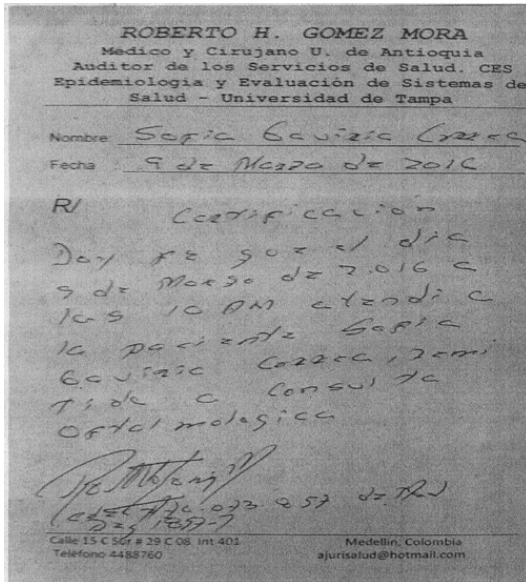 ROBERTO H. GOMEZ MORA
Medico y Cirujano U. de Antioquia
Auditor de los Servicios de Salud. CES
Epidemiologia y Evaluación de Sistemas de
Salud - Universidad de Tampa
Nombre Sofia Gaviria Correa
Fecha 9 de Marzo de 2016
R/ Certificacion
Doy fe que el dia
9 de Marzo de 2.016 a
las 10 AM atendi a
la paciente Sofia
Gaviria Correa, remi
tida a consulta
Oftalmologica
Calle 15 C Sur # 29 C 08 Int 401
Teléfono 4488760
Medellin, Colombia
ajurisalud@hotmail.com